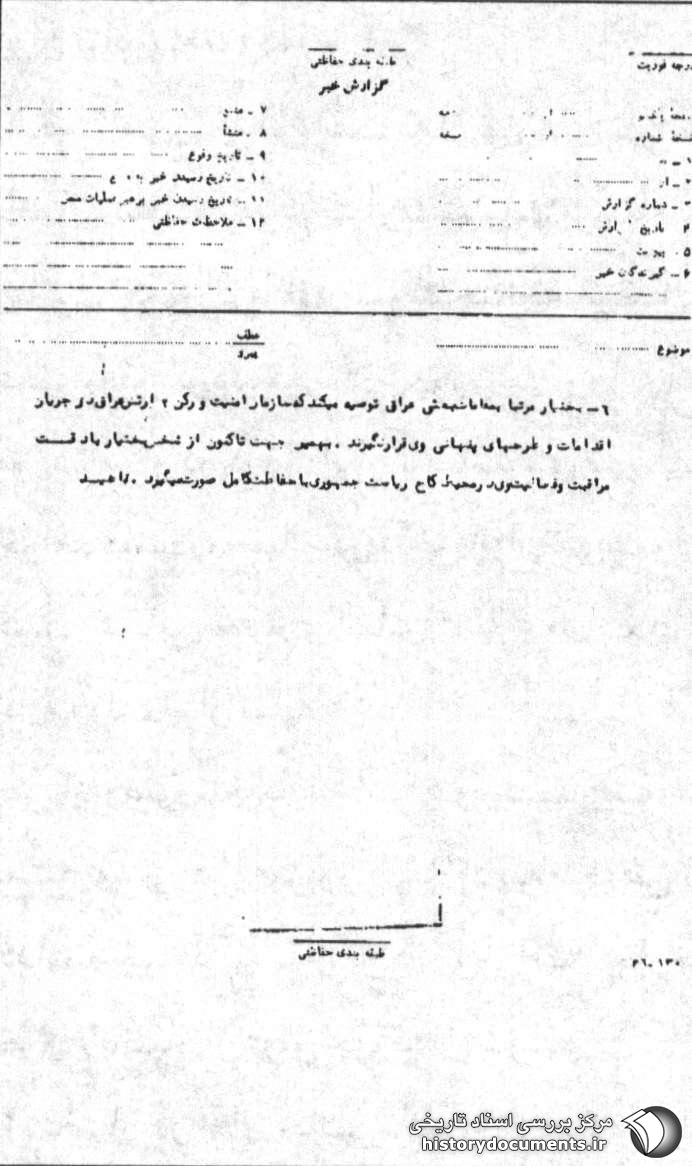 طبقه بندی حفاظتی
گزارش خبر
درجه فوریت
صفحه
نسخه شماره نسخه
۱ ـ
۲ ـ از
۳ ـ شماره گزارش
۴ تاریخ گزارش
۵ پیوست
۶ ـ گیرندگان خبر
۷ ـ منبع
۸ ـ منشأ
۹ ـ تاریخ وقوع
۱۰ ـ تاریخ رسیدن خبر
۱۱ ـ تاریخ رسیدن خبر برهبر عملیات
۱۲ ـ ملاحظات حفاظتی
موضوع
عطف
پیرو
۶ ـ بختیار مرتبا بمقامات عراقی توصیه میکند که سازمان امنیت و رکن ۲ ارتش عراق در جریان
اقدامات و طرحهای پنهانی وی قرار نگیرند . بهمین جهت تاکنون از شخص بختیار با دقت
مراقبت و فعالیت وی در محیط کاخ ریاست جمهوری با حفاظت کامل صورت میگیرد .
طبقه بندی حفاظتی
۳۶-۱۳۰
مرکز بررسی اسناد تاریخی
historydocuments.ir